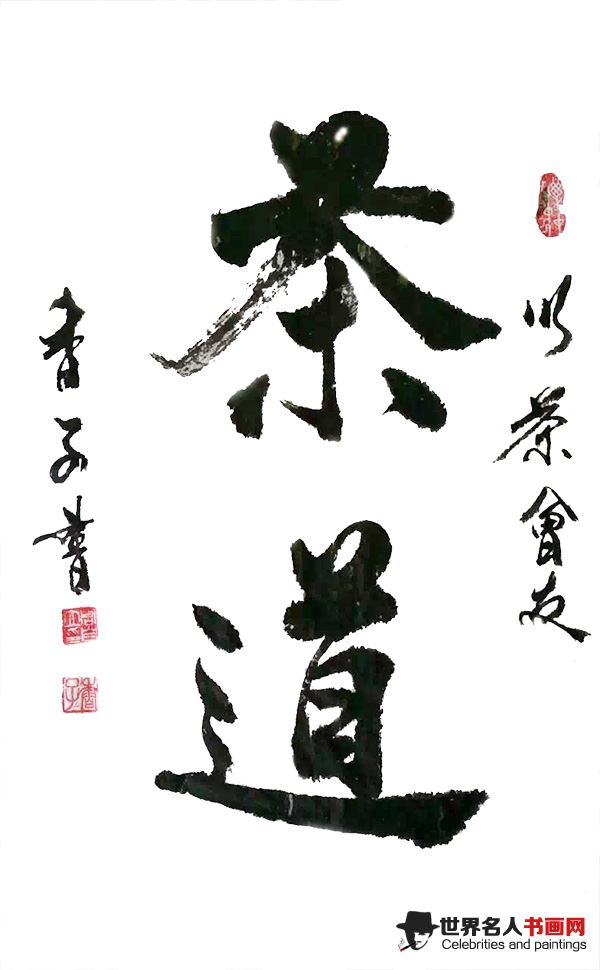 以茶會友
茶道
香子書
世界名人书画网
Celebrities and paintings